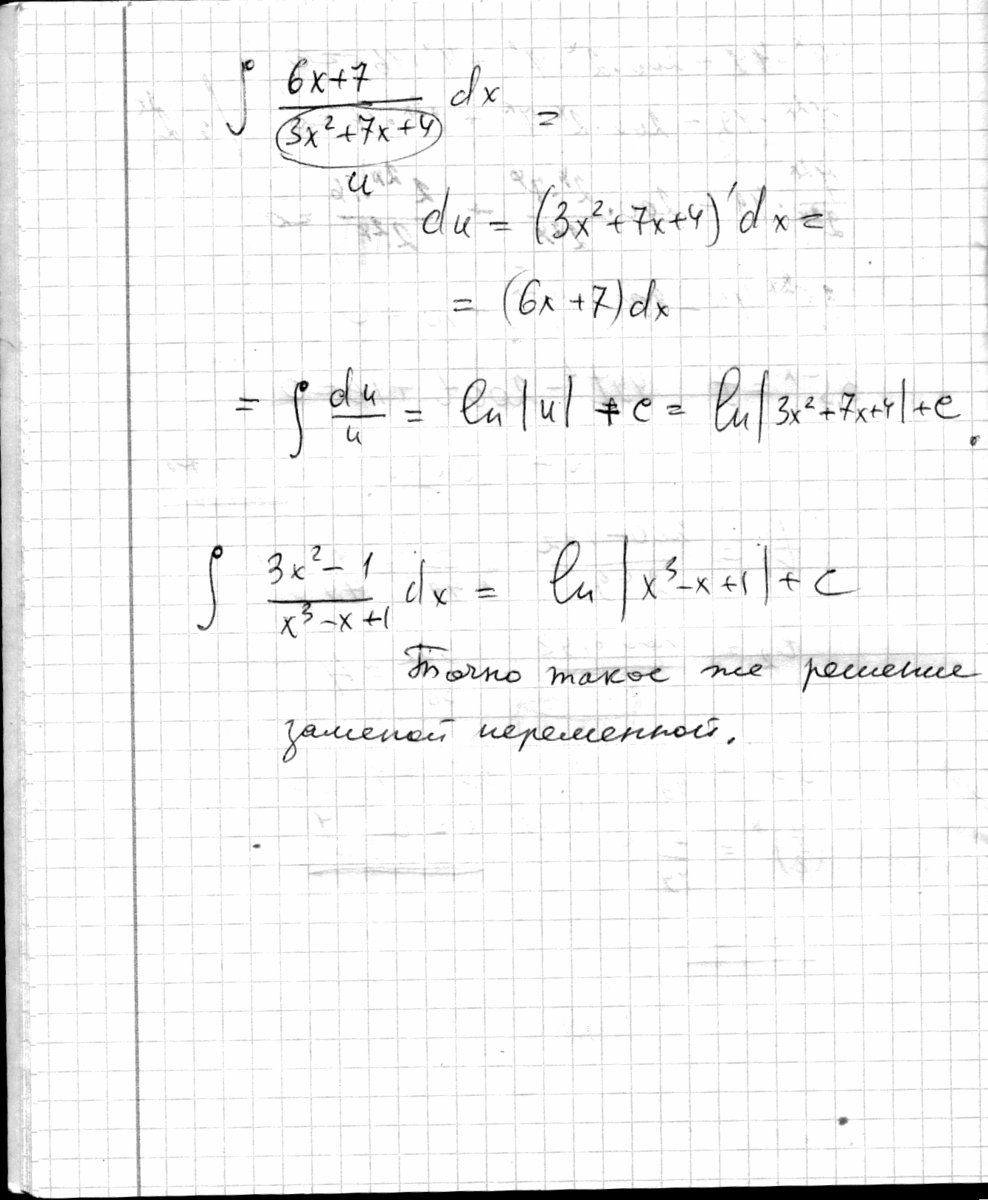 ∫ (6x+7)/(3x²+7x+4) dx =
u
du = (3x²+7x+4)'dx =
= (6x+7)dx
= ∫ du/u = ln|u| + c = ln|3x²+7x+4| + c.
∫ (3x²-1)/(x³-x+1) dx = ln|x³-x+1| + c
Точно такое же решение
заменой переменной.